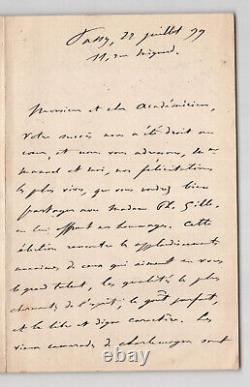 Passy, 22 juillet 99
11, rue
Monsieur et cher Académicien,
Votre succès nous a été droit au
cœur, et nous vous adressons, Mme
Manuel et moi, nos félicitations
les plus vives, que vous voudrez bien
partager avec Madame Ph. Gille
en lui offrant nos hommages. Cette
élection rencontre les applaudissements
unanimes de ceux qui aiment en vous
le grand talent, les qualités les plus
charmantes de l'esprit, le goût parfait,
et le libre et digne caractère. Les
vieux camarades de Charlemagne sont
© ebay.com